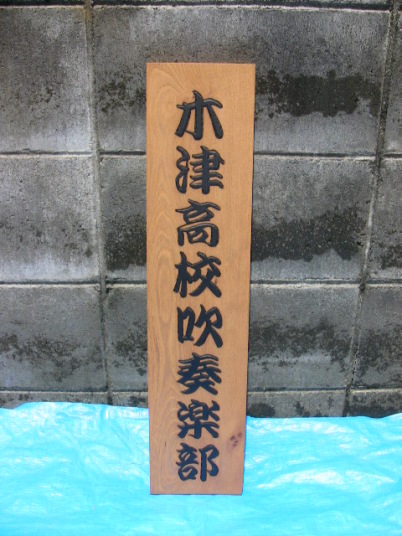 木津高校吹奏楽部